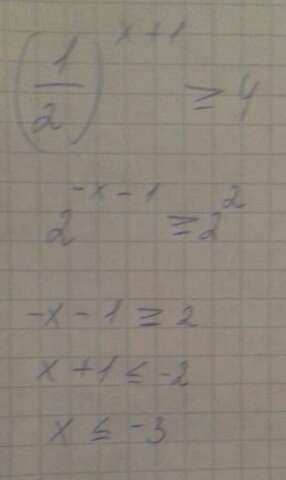 (1/2)^(x+1) ≥ 4
2^(-x-1) ≥ 2^2
-x - 1 ≥ 2
x + 1 ≤ -2
x ≤ -3